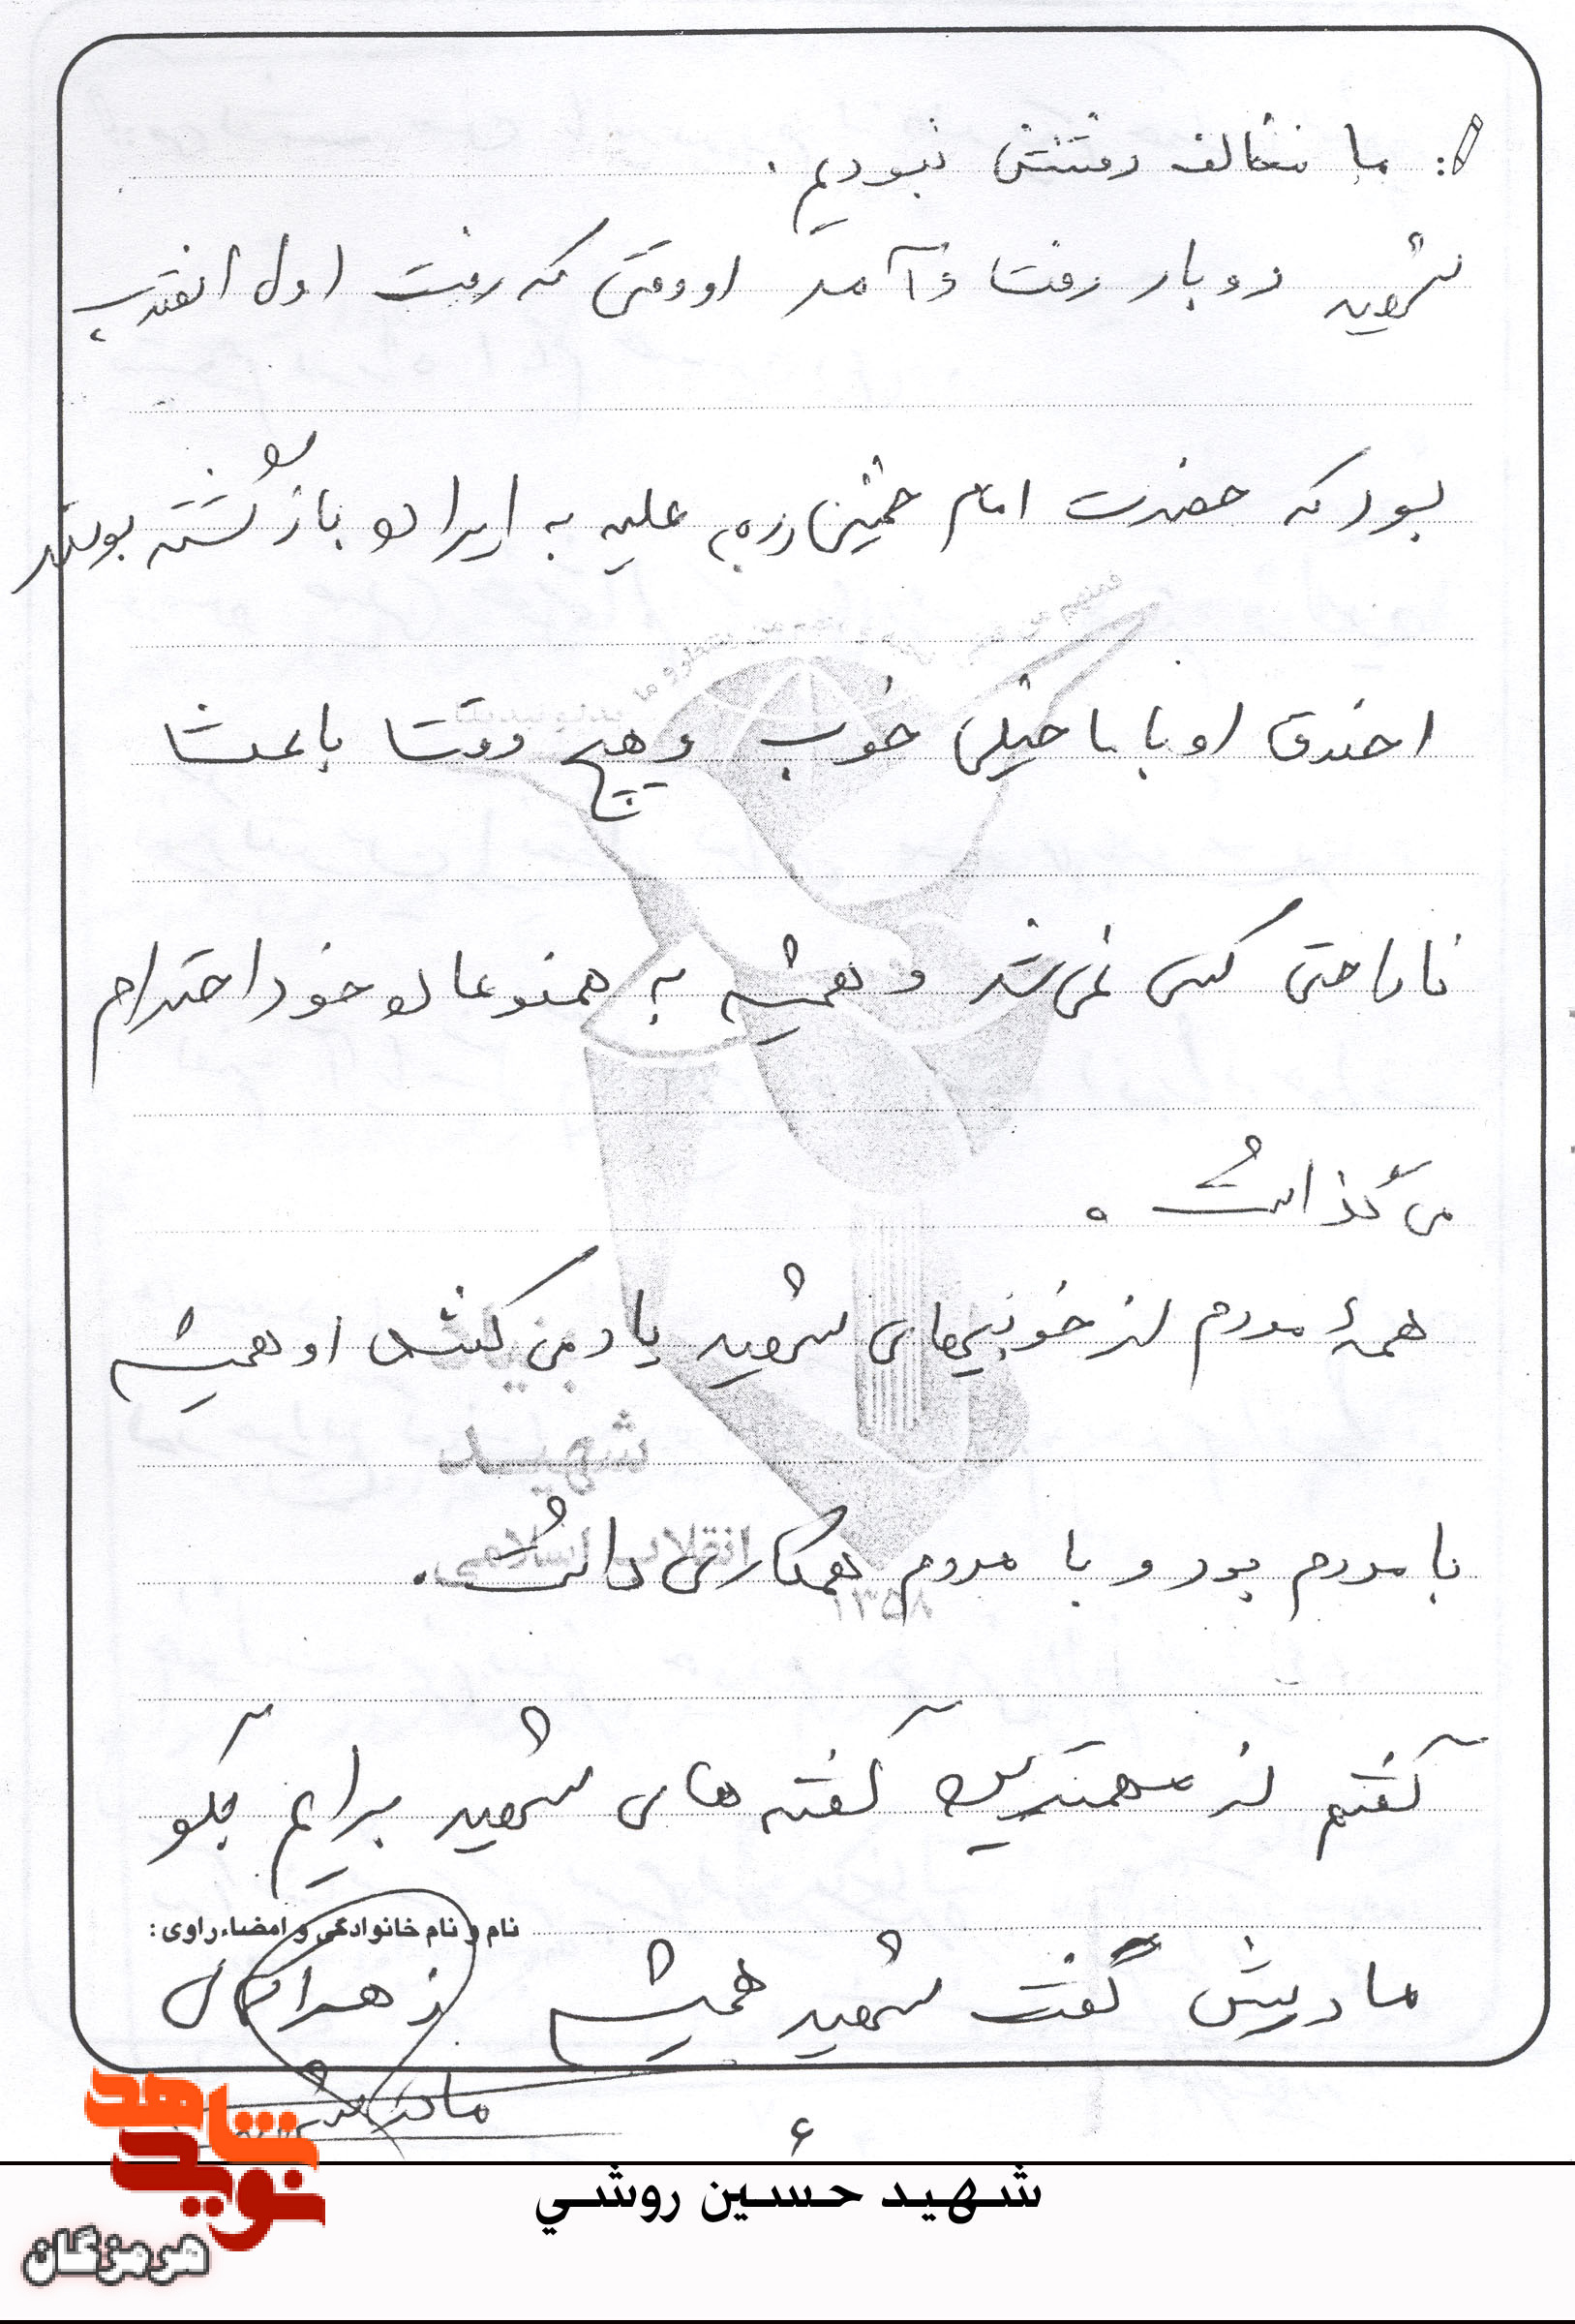 ما مخالف رفتنش نبودیم.
شهید دو بار رفت و آمد او وقتی که رفت اول انقلاب
بود که حضرت امام خمینی (ره) علیه به ایران بازگشته بودند
اخلاق او با ما خیلی خوب و هیچ وقت باعث
ناراحتی کسی نمی‌شد و همیشه به همنوعان خود احترام
می گذاشت.
همهٔ مردم از خوبیهای شهید یاد می کنند او همیشه
با مردم بود و با مردم همکاری داشت.
شهید
انقلاب اسلامی
۱۳۵۸
گفتم از مهمترین گفته های شهید برایم بگو
نام و نام خانوادگی و امضاء راوی:
مادرش گفت شهید همیشه
زهرا
مادر شهید
۶
شهيد حسين روشي
نوید شاهد
هرمزگان